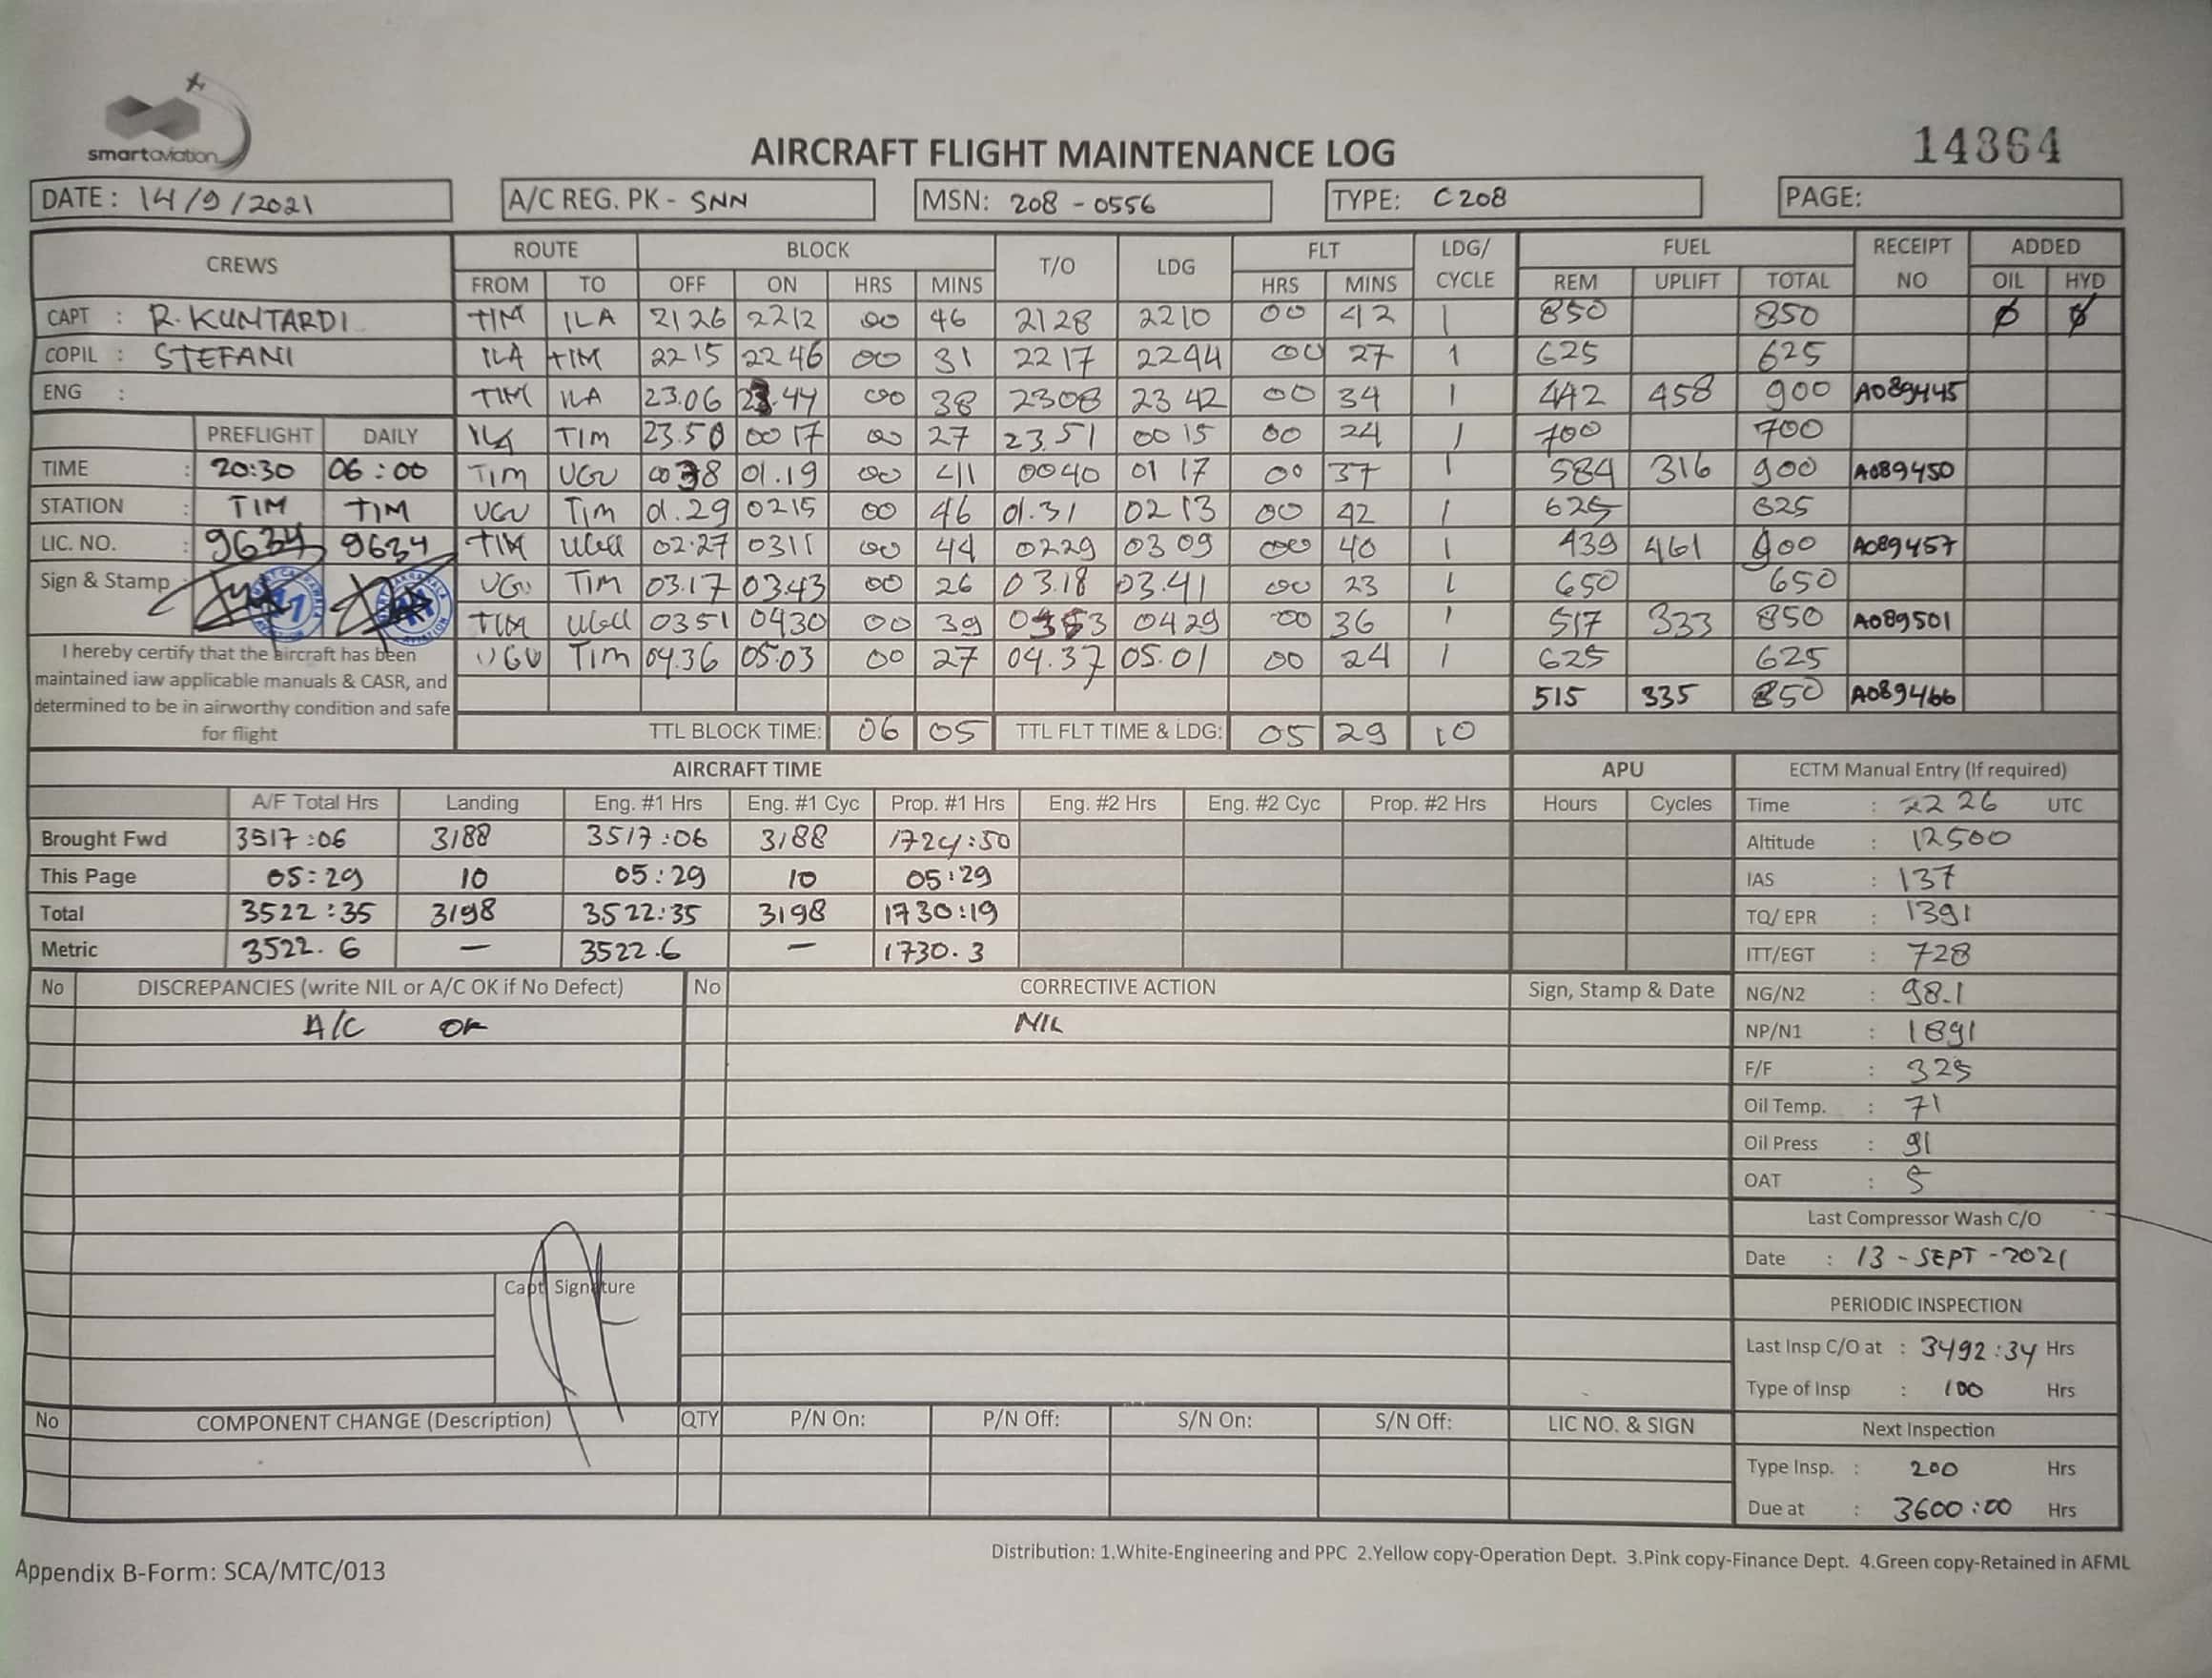 smartaviation
AIRCRAFT FLIGHT MAINTENANCE LOG
14364
DATE : 14/9/2021 A/C REG. PK - SNN MSN: 208 - 0556 TYPE: C208 PAGE:
CREWS ROUTE BLOCK T/O LDG FLT LDG/ CYCLE FUEL RECEIPT NO ADDED
FROM TO OFF ON HRS MINS HRS MINS REM UPLIFT TOTAL OIL HYD
CAPT : R. KUNTARDI TIM ILA 2126 2212 00 46 2128 2210 00 42 1 850 850 Ø Ø
COPIL : STEFANI ILA TIM 2215 2246 00 31 2217 2244 00 27 1 625 625
ENG : TIM ILA 23.06 23.44 00 38 2308 2342 00 34 1 442 458 900 A089445
PREFLIGHT DAILY ILA TIM 23.50 0017 00 27 23.51 0015 00 24 1 700 700
TIME : 20:30 06:00 TIM UGU 0038 01.19 00 41 0040 0117 00 37 1 584 316 900 A089450
STATION : TIM TIM UGU TIM 01.29 0215 00 46 01.31 0213 00 42 1 625 625
LIC. NO. : 9634 9634 TIM UGU 02.27 0311 00 44 0229 0309 00 40 1 439 461 900 A089457
Sign & Stamp UGU TIM 03.17 03.43 00 26 03.18 03.41 00 23 1 650 650
TIM UGU 0351 0430 00 39 0353 0429 00 36 1 517 333 850 A089501
I hereby certify that the aircraft has been UGU TIM 04.36 05.03 00 27 04.37 05.01 00 24 1 625 625
maintained iaw applicable manuals & CASR, and
determined to be in airworthy condition and safe 515 335 850 A089466
for flight TTL BLOCK TIME: 06 05 TTL FLT TIME & LDG: 05 29 10
AIRCRAFT TIME APU ECTM Manual Entry (If required)
A/F Total Hrs Landing Eng. #1 Hrs Eng. #1 Cyc Prop. #1 Hrs Eng. #2 Hrs Eng. #2 Cyc Prop. #2 Hrs Hours Cycles Time : 2226 UTC
Brought Fwd 3517:06 3188 3517:06 3188 1724:50 Altitude : 12500
This Page 05:29 10 05:29 10 05:29 IAS : 137
Total 3522:35 3198 3522:35 3198 1730:19 TQ/ EPR : 1391
Metric 3522.6 — 3522.6 — 1730.3 ITT/EGT : 728
No DISCREPANCIES (write NIL or A/C OK if No Defect) No CORRECTIVE ACTION Sign, Stamp & Date NG/N2 : 98.1
A/C OK NIL NP/N1 : 1891
F/F : 325
Oil Temp. : 71
Oil Press : 91
OAT : 5
Last Compressor Wash C/O
Date : 13 - SEPT - 2021
Capt Signature
PERIODIC INSPECTION
Last Insp C/O at : 3492:34 Hrs
Type of Insp : 100 Hrs
No COMPONENT CHANGE (Description) QTY P/N On: P/N Off: S/N On: S/N Off: LIC NO. & SIGN Next Inspection
Type Insp. : 200 Hrs
Due at : 3600:00 Hrs
Distribution: 1.White-Engineering and PPC 2.Yellow copy-Operation Dept. 3.Pink copy-Finance Dept. 4.Green copy-Retained in AFML
Appendix B-Form: SCA/MTC/013